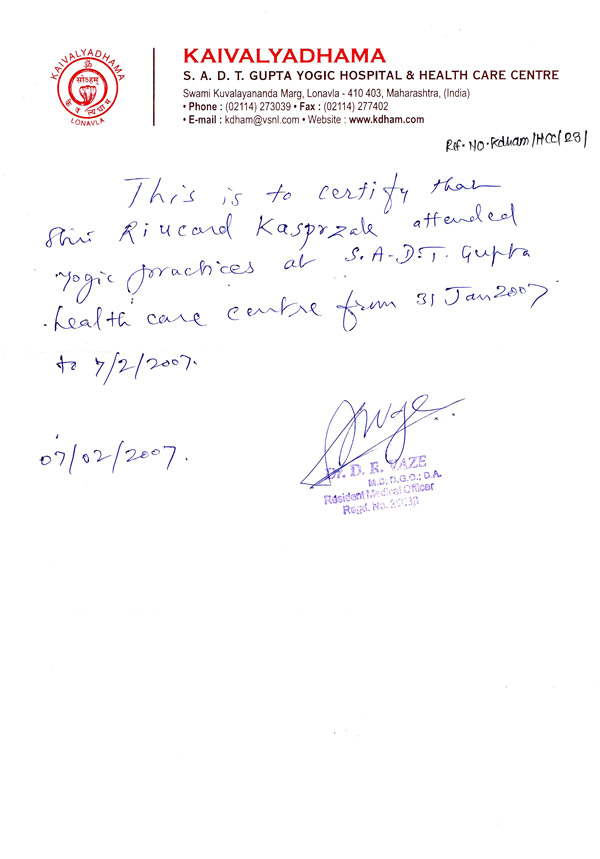 KAIVALYADHAMA
ॐ
सोऽहम्
कैवल्यधाम
LONAVLA
KAIVALYADHAMA
S. A. D. T. GUPTA YOGIC HOSPITAL & HEALTH CARE CENTRE
Swami Kuvalayananda Marg, Lonavla - 410 403, Maharashtra, (India)
• Phone : (02114) 273039 • Fax : (02114) 277402
• E-mail : kdham@vsnl.com • Website : www.kdham.com
Ref. No. Kdham/HCC/28/
This is to certify that
Shri Riucard Kasprzak attended
Yogic practices at S.A.D.T. Gupta
health care centre from 31 Jan 2007
to 7/2/2007.
07/02/2007.
Dr. D. R. VAZE
D.G.O.;
Resident Medical Officer
Regd. No.